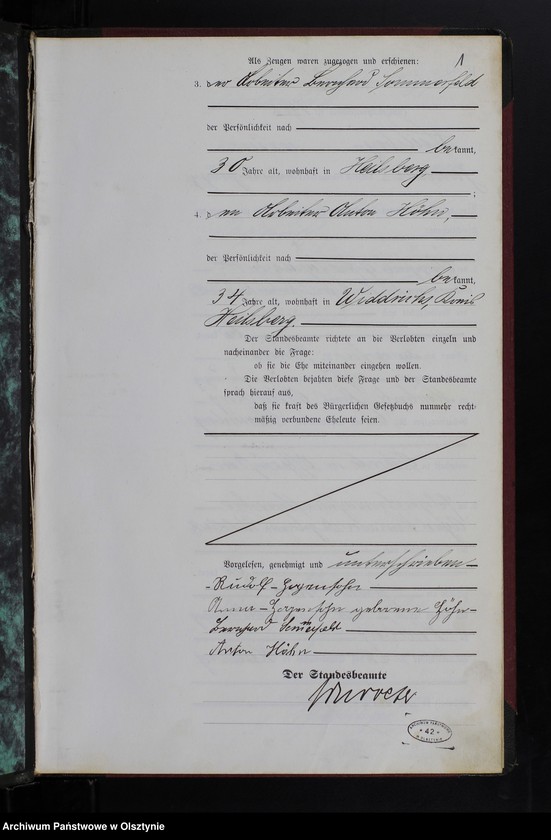 Als Zeugen waren zugezogen und erschienen: 1
3. der Arbeiter Bernhard Sommerfeld
der Persönlichkeit nach
bekannt,
30 Jahre alt, wohnhaft in Heilsberg
;
4. den Arbeiter Anton Höhn,
der Persönlichkeit nach
bekannt,
34 Jahre alt, wohnhaft in Kreis
Heilsberg.
Der Standesbeamte richtete an die Verlobten einzeln und
nacheinander die Frage:
ob sie die Ehe miteinander eingehen wollen.
Die Verlobten bejahten diese Frage und der Standesbeamte
sprach hierauf aus,
daß sie kraft des Bürgerlichen Gesetzbuchs nunmehr recht-
mäßig verbundene Eheleute seien.
Vorgelesen, genehmigt und unterschrieben
Rudolf
Anna geborene Höhn
Bernhard Sommerfeld
Anton Höhn
Der Standesbeamte
ARCHIWUM PAŃSTWOWE
* 42 *
W OLSZTYNIE
Archiwum Państwowe w Olsztynie